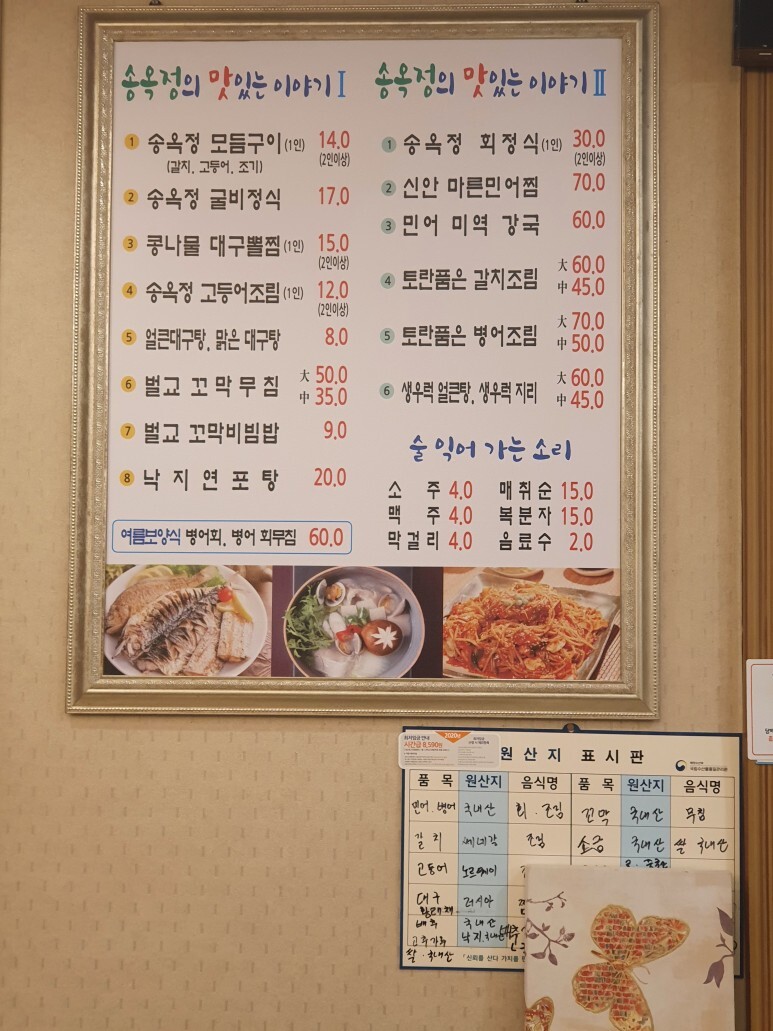 송옥정의 맛있는 이야기 I
1 송옥정 모듬구이(1인) 14.0
(갈치, 고등어, 조기) (2인이상)
2 송옥정 굴비정식 17.0
3 콩나물 대구뽈찜(1인) 15.0
(2인이상)
4 송옥정 고등어조림(1인) 12.0
(2인이상)
5 얼큰대구탕, 맑은 대구탕 8.0
6 벌교 꼬막무침 大 50.0
中 35.0
7 벌교 꼬막비빔밥 9.0
8 낙지연포탕 20.0
여름보양식 병어회, 병어 회무침 60.0
송옥정의 맛있는 이야기 II
1 송옥정 회정식(1인) 30.0
(2인이상)
2 신안 마른민어찜 70.0
3 민어 미역 강국 60.0
4 토란품은 갈치조림 大 60.0
中 45.0
5 토란품은 병어조림 大 70.0
中 50.0
6 생우럭 얼큰탕, 생우럭 지리 大 60.0
中 45.0
술 익어 가는 소리
소주 4.0 매취순 15.0
맥주 4.0 복분자 15.0
막걸리 4.0 음료수 2.0
최저임금 안내 2020년
시간급 8,590원
원산지 표시판
품목 원산지 음식명 품목 원산지 음식명
민어, 병어 국내산 회, 조림 꼬막 국내산 무침
갈치 세네갈 조림 소금 국내산 쌀 국내산
고등어 노르웨이
대구 러시아
배추 국내산
고추가루 낙지
쌀·국내산
「신뢰를 산다 가치를